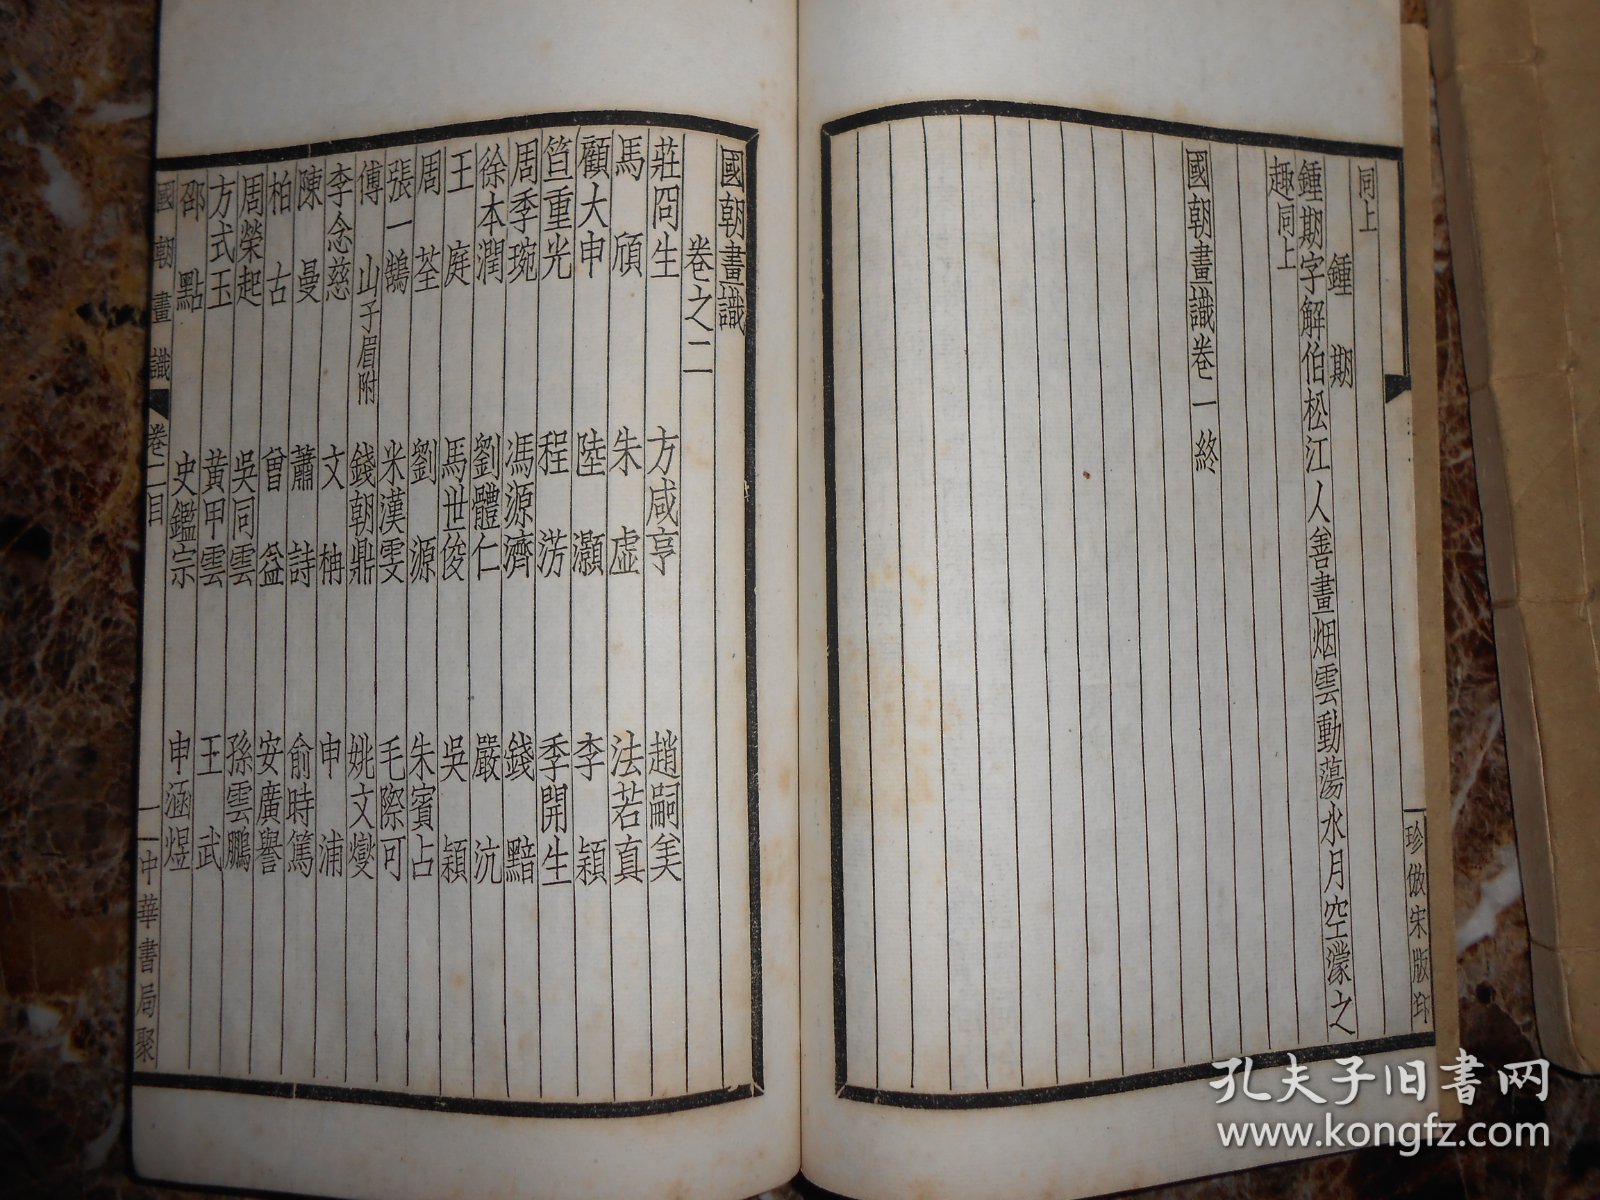 同上
鍾期
鍾期字解伯松江人善畫烟雲動蕩水月空濛之
趣同上
國朝畫識卷一終
珍倣宋版印
國朝畫識
卷之二
莊冏生 方咸亨 趙嗣美
馬頎 朱虛 法若真
顧大申 陸灝 李穎
笪重光 程淓 季開生
周季琬 馮源濟 錢黯
徐本潤 劉體仁 嚴沆
王庭 馬世俊 吳穎
周荃 劉源 朱賓占
張一鵠 米漢雯 毛際可
傅山子眉附 錢朝鼎 姚文燮
李念慈 文柟 申浦
陳曼 蕭詩 俞時篤
柏古 曾益 安廣譽
周榮起 吳同雲 孫雲鵬
方式玉 黃甲雲 王武
邵點 史鑑宗 申涵煜
國朝畫識 卷二目 一 中華書局聚
孔夫子旧书网
www.kongfz.com